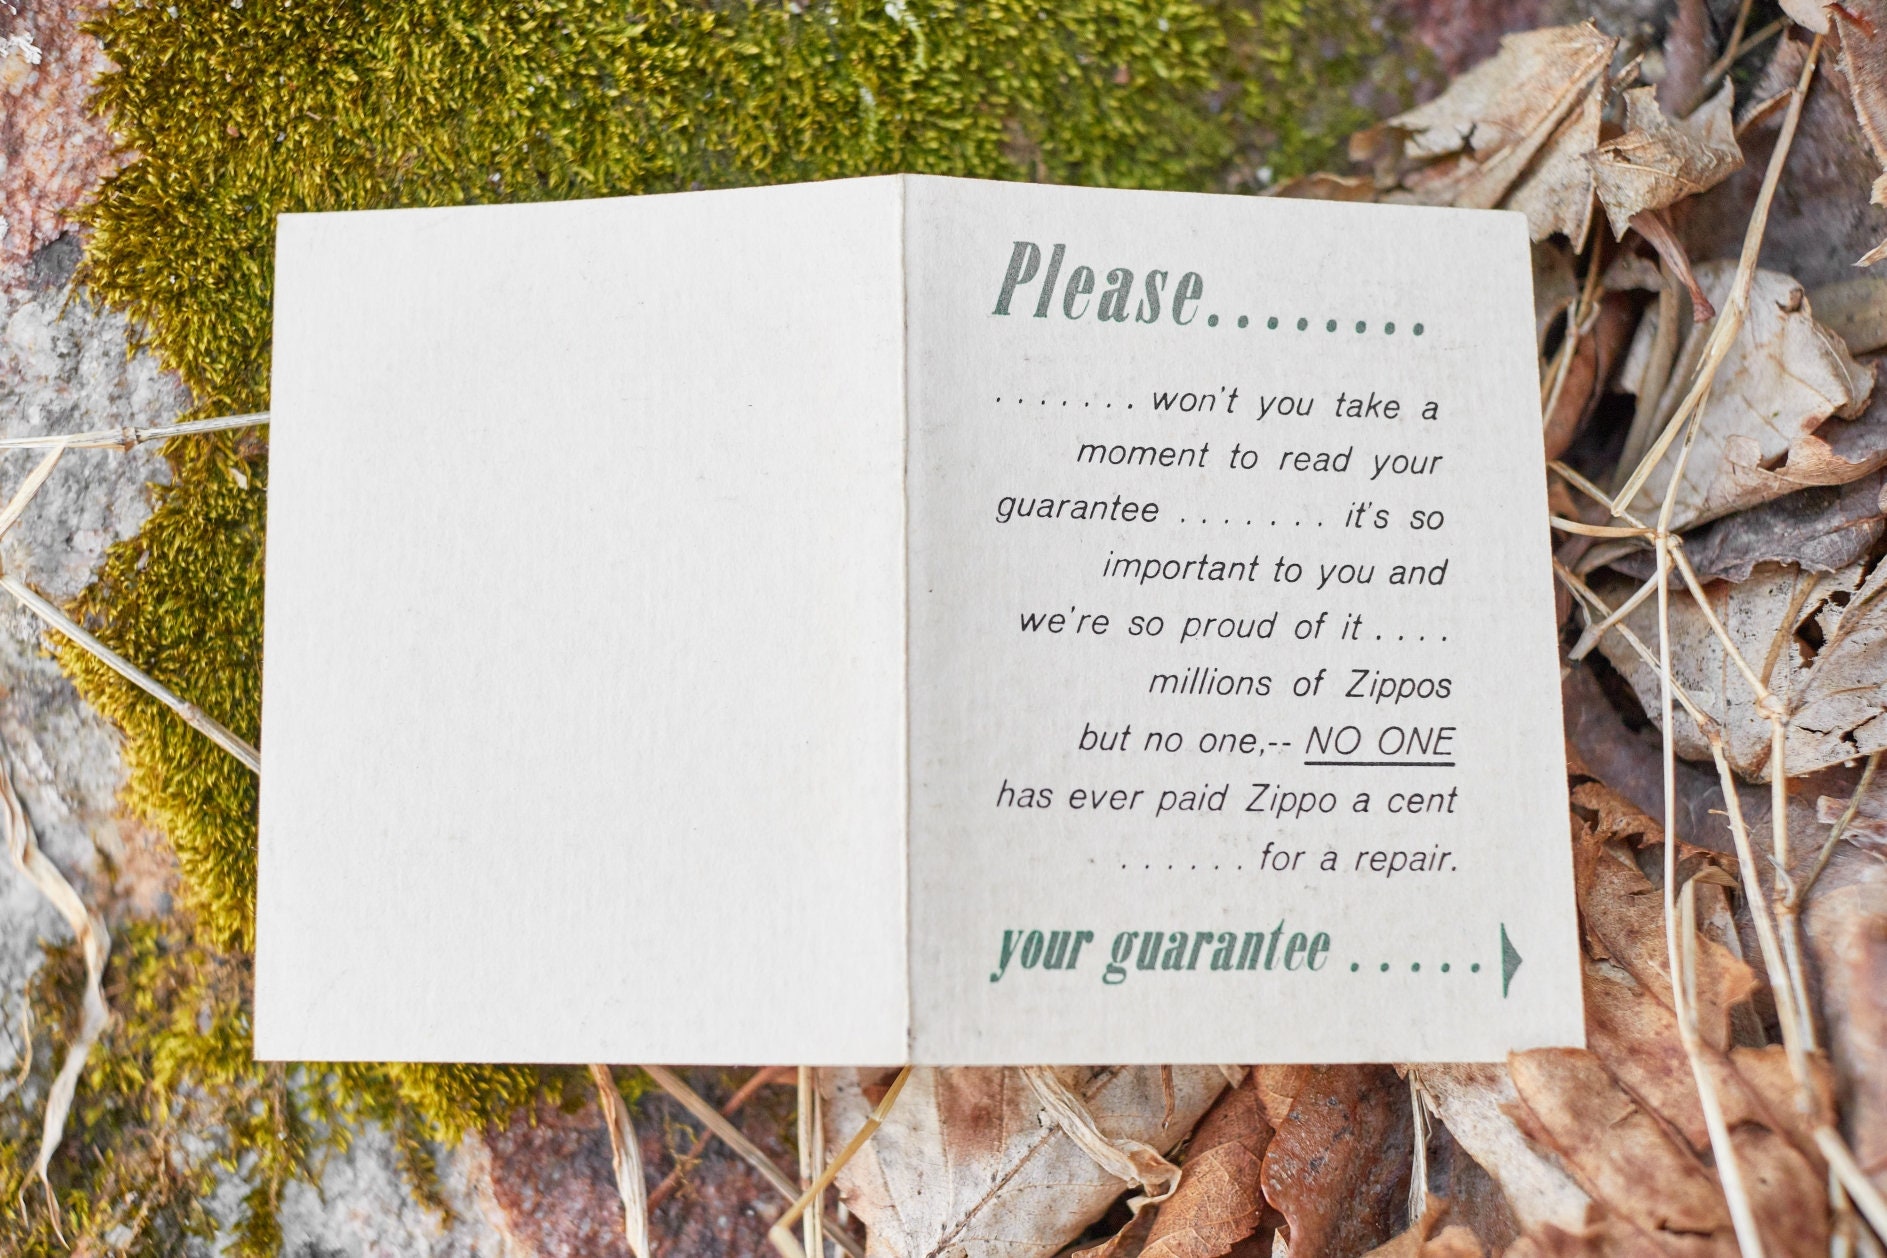 Please........
.......won't you take a
moment to read your
guarantee.......it's so
important to you and
we're so proud of it....
millions of Zippos
but no one,-- NO ONE
has ever paid Zippo a cent
......for a repair.
your guarantee.....